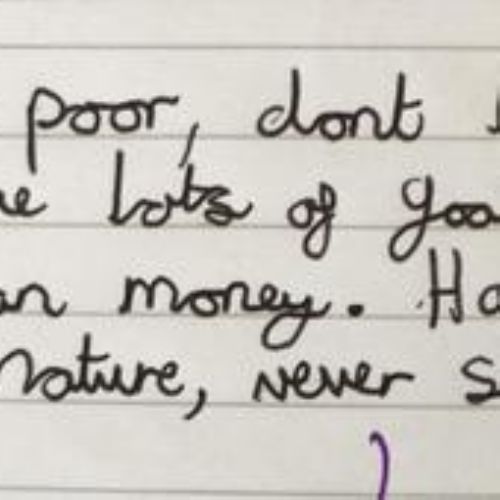 poor, dont
lots of goo
an money. Ha
Nature, never s